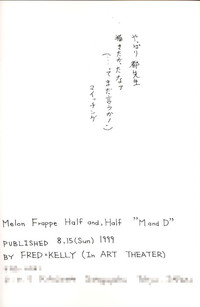 やっぱり都先生
描きたかったなァ
(…ってまだ言うか!)
スイッチング
Melon Frappe Half and, Half "M and D"
PUBLISHED 8.15(Sun) 1999
BY FRED・KELLY (In ART THEATER)